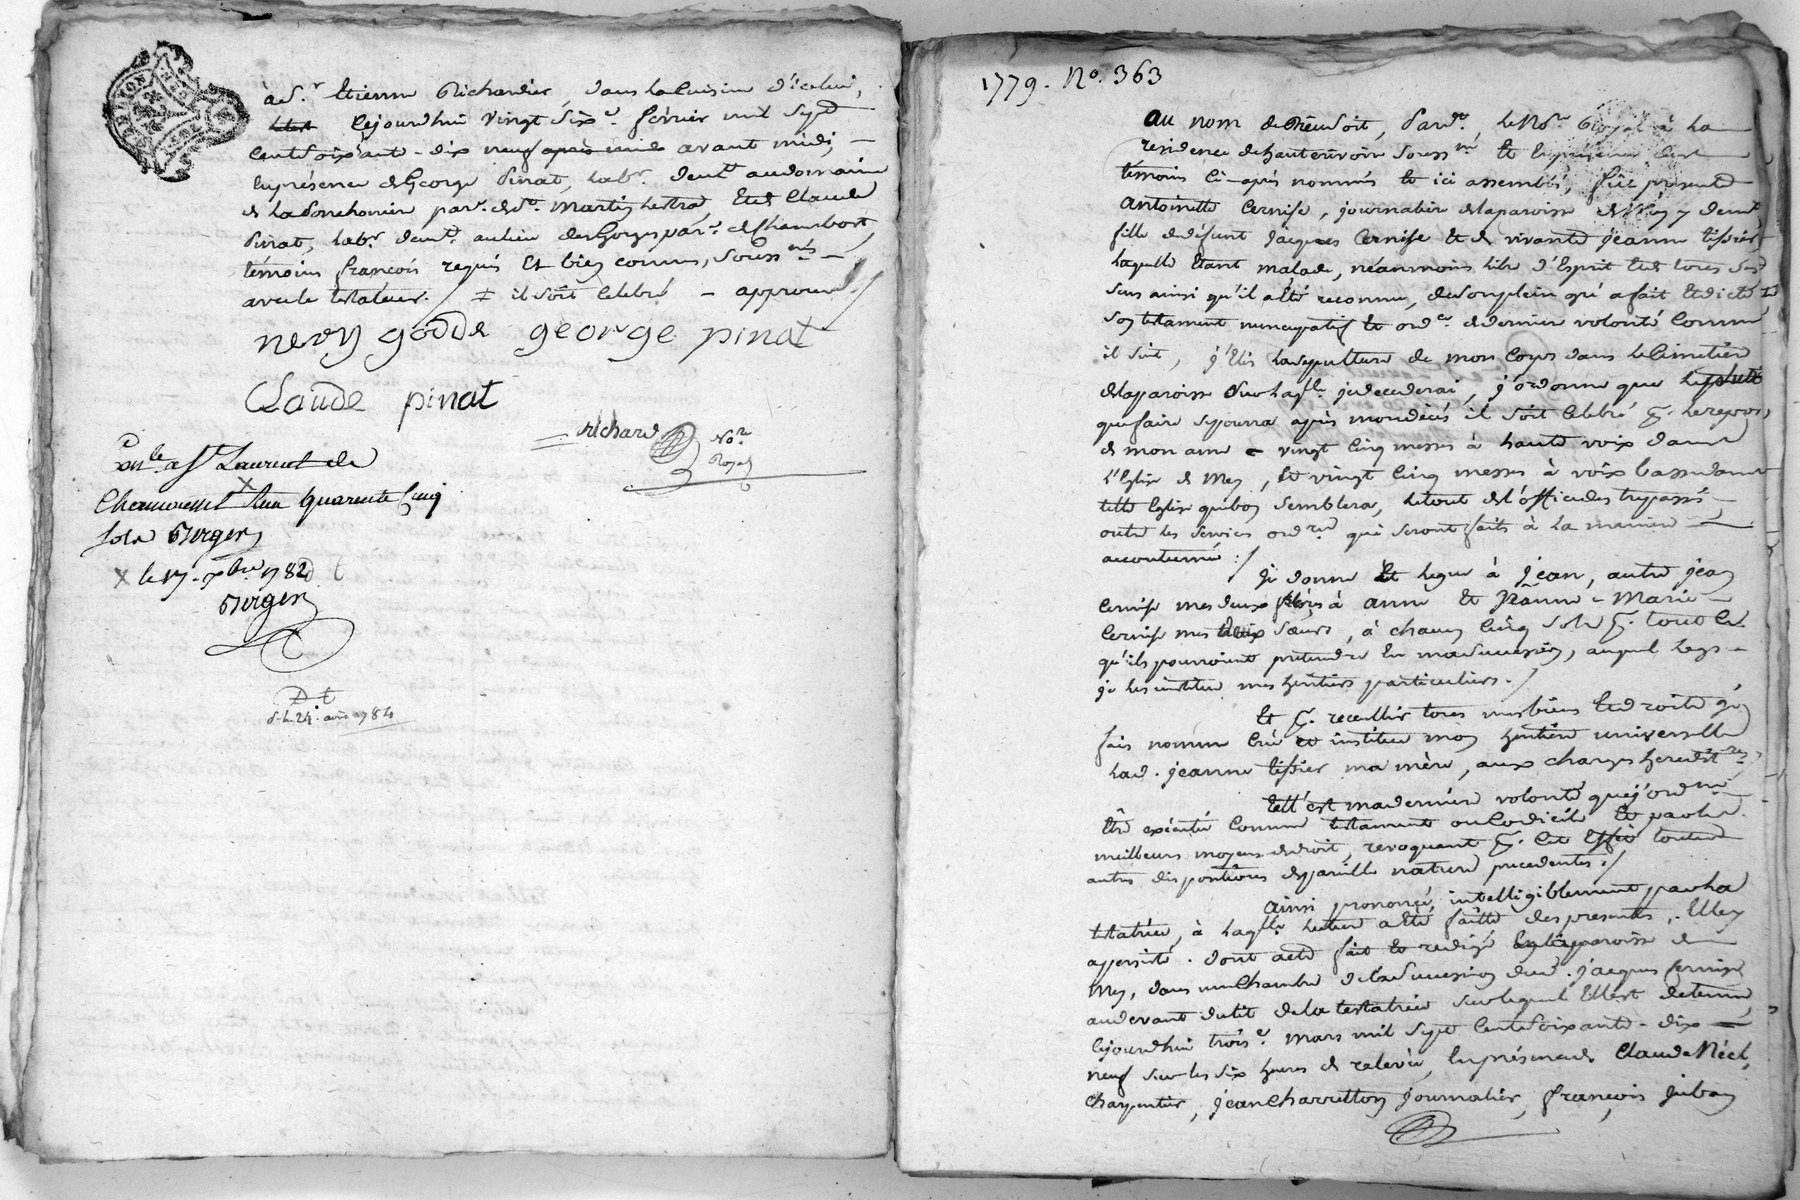 à d.t Etienne Richardier, dans la Cuisine d'icelui,
Cejourdhui vingt sixe. février mil Sept
Cent Soixante-dix neuf apres midi avant midi,
En présence de George Pinat, labr. demt. au domaine
de la par. de St. Martin Lestrad Et de Claude
Pinat, labr. demt. au lieu des Gorges par. de Chambost,
témoins françois requis Et bien connus, Soussnés
avec le testateur. / ≠ il soit Celebré - approuvé /
neon godde george pinat
Claude pinat
Richard Nore. Royal
Con.lé a St Laurent de
Chamousset X Reçu quarante Cinq
sols Berger
X le 17. xbre 1782
Berger
D t
d. le 24. avril 1784
1779. No. 363
Au nom de Dieu Soit, Pardt. le Nore. Royal à la
residence de hauterivoire Soussné, Et En présence des
témoins Ci-après nommés Et ici assemblés, fût presente
Antoinette Cernise, journaliere de la paroisse de Mey y demte
fille de défunt Jacques Cernise Et de vivante Jeanne tissier
Laquelle Etant malade, néanmoins libre d'Esprit Et de tous Ses
Sens ainsi qu'il a été reconnu, de Son plein gré a fait Et dicté
Son testament nuncupatif Et ordce. de derniere volonté Comme
il Suit, j'Elis la Sepulture de mon Corps dans le Cimetière
de la paroisse Sur laqlle. je decederai, j'ordonne que le plutot
que faire Se pourra après mon décès il Soit Celebré p. le repos
de mon ame vingt Cinq messes à haute voix dans
l'Eglise de Mey, Et vingt Cinq messes à voix basse dans
telle Eglise que bon Semblera, le tout de l'office des trepassés
outre les Services ordres qui Seront faits à la maniere
accoutumée. /
Je donne Et legue à Jean, autre jean
Cernise mes deux frères à anne Et Jeanne-Marie
Cernise mes deux Sœurs, à chacun Cinq Sols p. tout Ce
qu'ils pourroient pretendre En ma Succession, auquel legs
je les institue mes heritiers particuliers. /
Et p. receullir tous mes biens Et droits je
fais nomme Crée Et institue mon heritiere universelle
lad. jeanne tissier ma mère, aux charges heredres
Tell'est ma derniere volonté que j'ordne
Etre exécutée Comme testament ou Codicile Et par les
meilleurs moyens de droit, revoquant p. Cet Effet toutes
autres dispositions de pareille nature precedentes. /
Ainsi prononcé intelligiblement par la
testatrice, à laqlle. lecture a Eté faitte des presentes, Elle y
a persisté. dont acte fait Et redigé En la paroisse de
Mey, dans une Chambre de la Succession dud. jacques Cernise
au devant du lit de la testatrice Sur lequel Ell'est detenue,
Cejourdhui troise. mars mil Sept Cent Soixante-dix
neuf Sur les Six heures de relevée, En présence de Claude Néel,
Charpentier, jean Charretton journalier, françois Juban